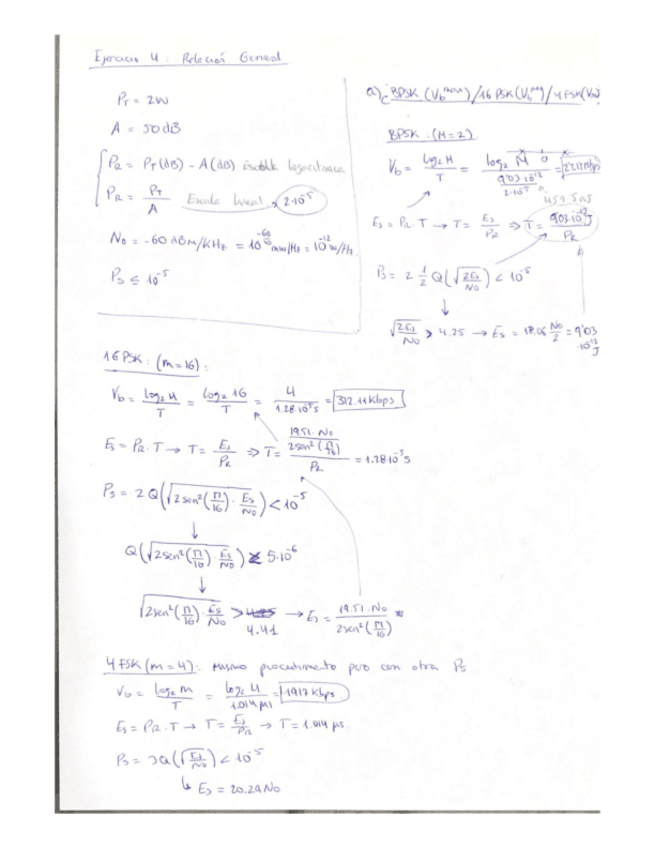 Ejercicio 4: Relación General
P_T = 2W
A = 50 dB
P_R = P_T(dB) - A(dB) Escala logarítmica
P_R = P_T / A Escala lineal → 2·10^-5
N_0 = -60 dBm/KHz = 10 mW/Hz = 10^-12 W/Hz.
P_S ≤ 10^-5
BPSK: (M=2)
V_b = log_2 M / T =
E_S = P_R · T → T = E_S / P_R ⇒ T = 903·10^-12 J / P_R
P_S = 2 1/2 Q(√(2E_S/N_0)) < 10^-5
↓
√(2E_S/N_0) > 4.25 → E_S = 18.06 N_0/2 = 9'03 ·10^-12 J
16 PSK: (m=16):
V_b = log_2 M / T = log_2 16 / T = 4 / 1.28·10^-5 s = 312.11 Kbps
E_S = P_R · T → T = E_S / P_R ⇒ T = (19.51·N_0 / 2sen²(π/16)) / P_R = 1.28·10^-5 s
P_S = 2Q(√(2sen²(π/16) · E_S/N_0)) < 10^-5
↓
5·10^-6
↓
√(2sen²(π/16) · E_S/N_0) > 4.41 → E_S = 19.51·N_0 / 2sen²(π/16) *
4FSK (m=4): Mismo procedimiento pero con otra P_S
V_b = log_2 m / T = log_2 4 / 1.014 μs = 1917 Kbps
E_S = P_R · T → T = E_S / P_R → T = 1.014 μs
P_S = 3Q(√(E_S/N_0)) < 10^-5
↳ E_S = 20.29 N_0